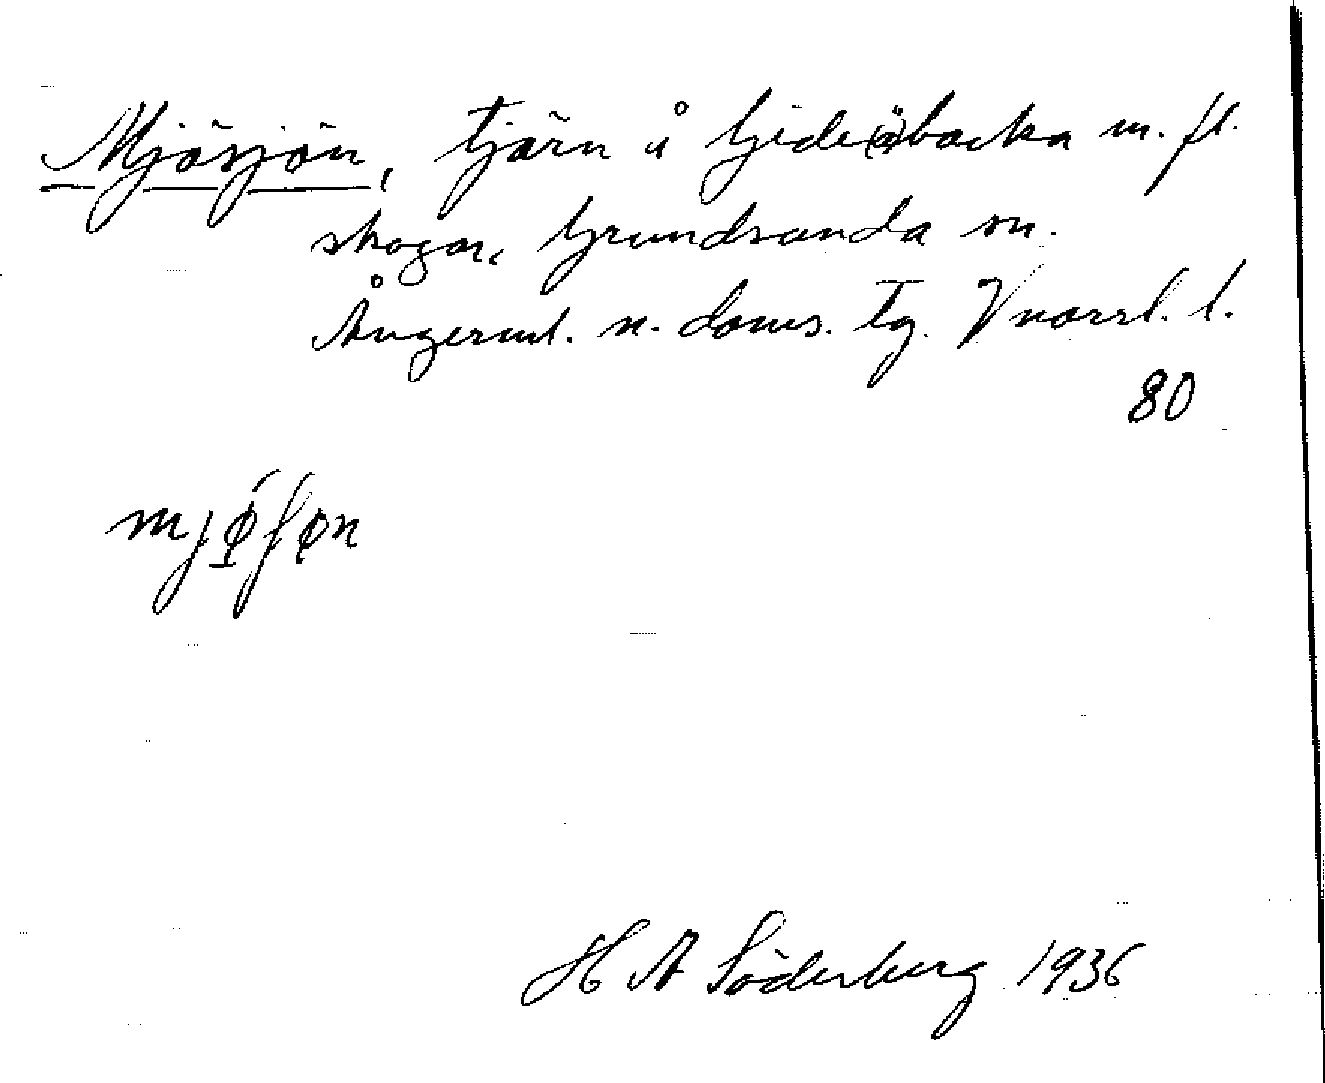 Mjösjön, tjärn å Gide(å)backa m. fl.
skogar, Grundsunda sn.
Ångerml. n. doms. tg. Vnorrl. l.
80
H A Söderberg 1936